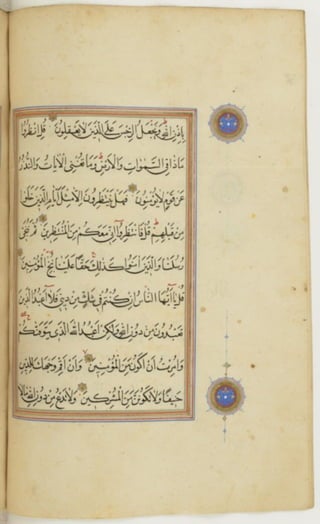 بِاِذْنِ اللهِ وَيَجْعَلُ الرِّجْسَ عَلَى الَّذِينَ لَا يَعْقِلُونَ قُلِ انْظُرُوا
مَاذَا فِي السَّمٰوَاتِ وَالْاَرْضِ وَمَا تُغْنِي الْاٰيَاتُ وَالنُّذُرُ
عَنْ قَوْمٍ لَا يُؤْمِنُونَ فَهَلْ يَنْتَظِرُونَ اِلَّا مِثْلَ اَيَّامِ الَّذِينَ خَلَوْا
مِنْ قَبْلِهِمْ قُلْ فَانْتَظِرُوا اِنِّي مَعَكُمْ مِنَ الْمُنْتَظِرِينَ ثُمَّ نُنَجِّي
رُسُلَنَا وَالَّذِينَ اٰمَنُوا كَذٰلِكَ حَقًّا عَلَيْنَا نُنْجِ الْمُؤْمِنِينَ
قُلْ يَا اَيُّهَا النَّاسُ اِنْ كُنْتُمْ فِي شَكٍّ مِنْ دِينِي فَلَا اَعْبُدُ الَّذِينَ
تَعْبُدُونَ مِنْ دُونِ اللهِ وَلٰكِنْ اَعْبُدُ اللهَ الَّذِي يَتَوَفّٰيكُمْ
وَاُمِرْتُ اَنْ اَكُونَ مِنَ الْمُؤْمِنِينَ وَاَنْ اَقِمْ وَجْهَكَ لِلدِّينِ
حَنِيفًا وَلَا تَكُونَنَّ مِنَ الْمُشْرِكِينَ وَلَا تَدْعُ مِنْ دُونِ اللهِ مَا لَا